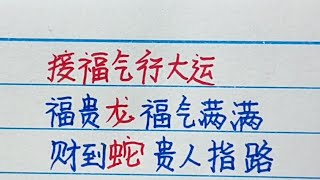 接福气行大运
福贵龙福气满满
财到蛇贵人指路